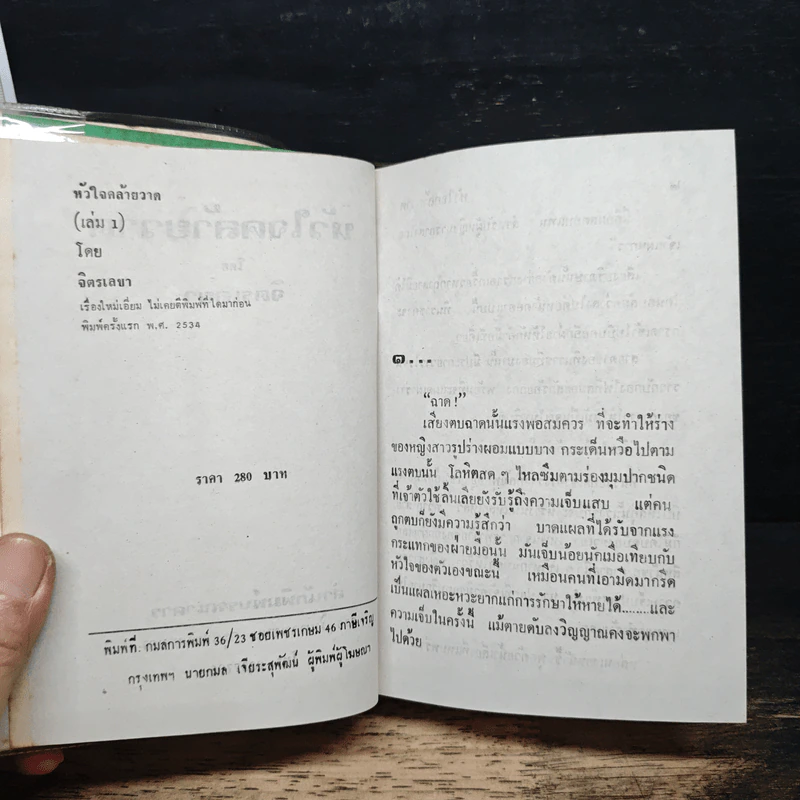 หัวใจคล้ายวาด
(เล่ม 1)
โดย
จิตรเลขา
เรื่องใหม่เอี่ยม ไม่เคยตีพิมพ์ที่ใดมาก่อน
พิมพ์ครั้งแรก พ.ศ. 2534
ราคา 280 บาท
พิมพ์ที่ กมลการพิมพ์ 36/23 ซอยเพชรเกษม 46 ภาษีเจริญ
กรุงเทพฯ นายกมล เจียระสุพัฒน์ ผู้พิมพ์ผู้โฆษณา
๑...
“ฉาด !”
เสียงตบฉาดนั้นแรงพอสมควร ที่จะทำให้ร่าง
ของหญิงสาวรูปร่างผอมแบบบาง กระเด็นหวือไปตาม
แรงตบนั้น โลหิตสด ๆ ไหลซึมตามร่องมุมปากชนิด
ที่เจ้าตัวใช้ลิ้นเลียยังรับรู้ถึงความเจ็บแสบ แต่คน
ถูกตบก็ยังมีความรู้สึกว่า บาดแผลที่ได้รับจากแรง
กระแทกของฝ่ายมือนั้น มันเจ็บน้อยนักเมื่อเทียบกับ
หัวใจของตัวเองขณะนี้ เหมือนคนที่เอามีดมากรีด
เป็นแผลเหอะหวะยากแก่การรักษาให้หายได้........และ
ความเจ็บในครั้งนี้ แม้ตายดับลงวิญญาณคงจะพกพา
ไปด้วย